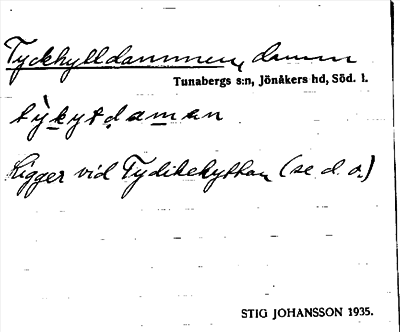 Tyckhylldammen, damm
Tunabergs s:n, Jönåkers hd, Söd. l.
Ligger vid (se d. o.)
STIG JOHANSSON 1935.